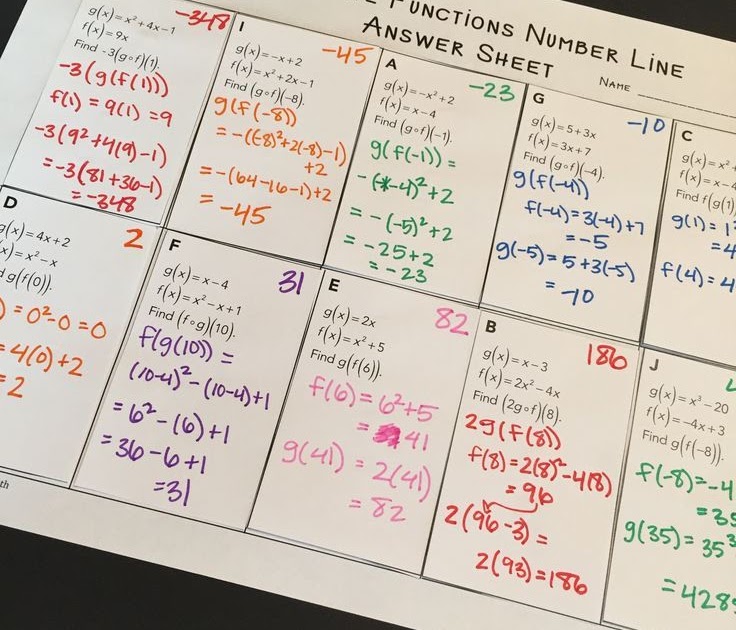 FUNCTIONS NUMBER LINE
ANSWER SHEET
NAME
g(x) = x² + 4x - 1
f(x) = 9x
Find -3(g∘f)(1).
-348
-3(g(f(1)))
f(1) = 9(1) = 9
-3(9² + 4(9) - 1)
= -3(81 + 36 - 1)
= -348
I
-45
g(x) = -x + 2
f(x) = x² + 2x - 1
Find (g∘f)(-8).
g(f(-8))
= -((-8)² + 2(-8) - 1)
+2
= -(64 - 16 - 1) + 2
= -45
A
-23
g(x) = -x² + 2
f(x) = x - 4
Find (g∘f)(-1).
g(f(-1)) =
-4)² + 2
= -(-5)² + 2
= -25 + 2
= -23
G
-10
g(x) = 5 + 3x
f(x) = 3x + 7
Find (g∘f)(-4).
g(f(-4))
f(-4) = 3(-4) + 7
= -5
g(-5) = 5 + 3(-5)
= -10
C
g(x) = x²
f(x) = x - 4
Find f(g(1)
g(1) = 1²
= 4
f(4) = 4
D
2
g(x) = 4x + 2
(x) = x² - x
d g(f(0)).
) = 0² - 0 = 0
= 4(0) + 2
= 2
F
31
g(x) = x - 4
f(x) = x² - x + 1
Find (f∘g)(10).
f(g(10)) =
(10-4)² - (10-4) + 1
= 6² - (6) + 1
= 36 - 6 + 1
= 31
E
82
g(x) = 2x
f(x) = x² + 5
Find g(f(6)).
f(6) = 6² + 5
= 41
g(41) = 2(41)
= 82
B
186
g(x) = x - 3
f(x) = 2x² - 4x
Find (2g∘f)(8).
2g(f(8))
f(8) = 2(8)² - 4(8)
= 96
2(96 - 3) =
2(93) = 186
J
g(x) = x³ - 20
f(x) = -4x + 3
Find g(f(-8)).
f(-8) = -4
= 35
g(35) = 35³
= 428
th